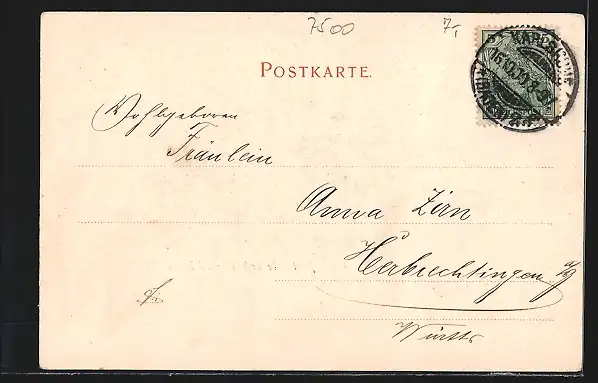 7500 7,-
POSTKARTE.
KARLSRUHE
Wohlgeboren
Fräulein
Anna Zirn
Herbrechtingen
Württb